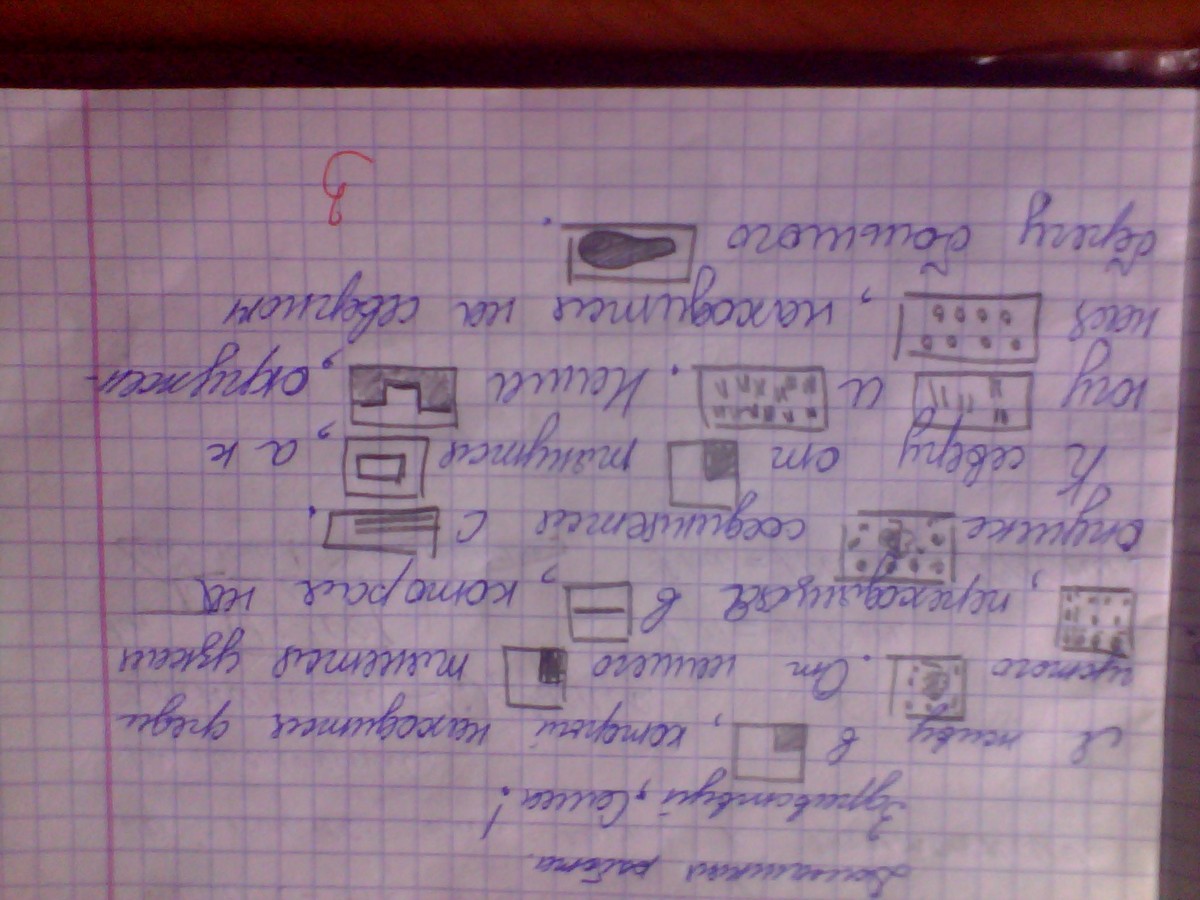 Домашняя работа.
Здравствуй, Саша!
Я живу в , который находится среди
густого . От нашего тянется узкая
, переходящая в , которая на
опушке соединяется с .
К северу от тянутся , а к
югу и . Наша , окружен-
ная , находится на северном
берегу большого .
3